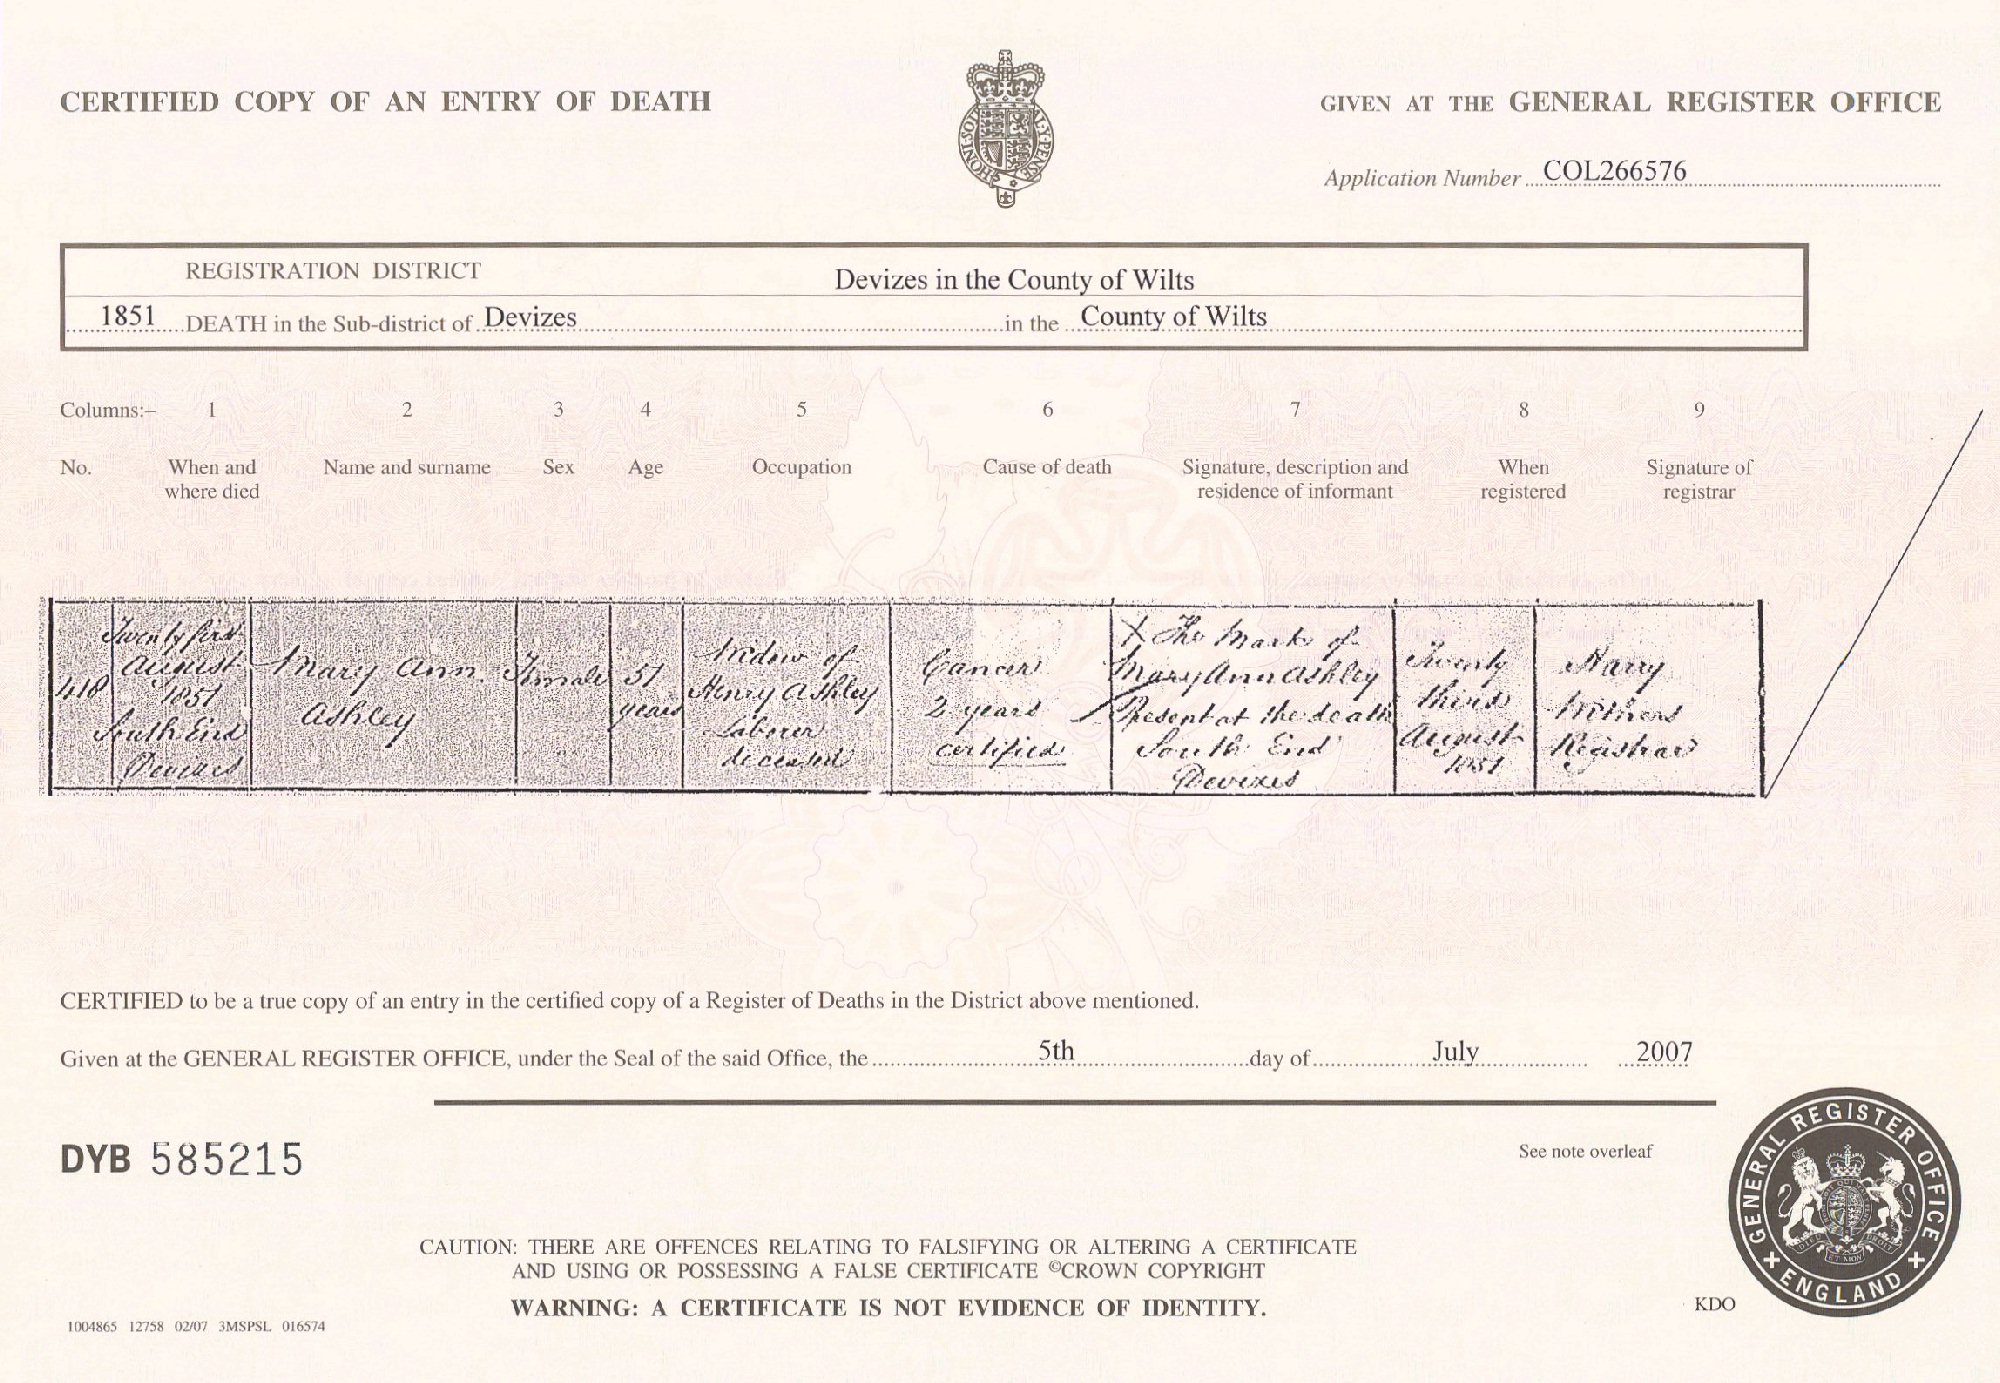 CERTIFIED COPY OF AN ENTRY OF DEATH
GIVEN AT THE GENERAL REGISTER OFFICE
Application Number COL266576
REGISTRATION DISTRICT
Devizes in the County of Wilts
1851 DEATH in the Sub-district of Devizes in the County of Wilts
Columns:– 1 2 3 4 5 6 7 8 9
No. When and where died Name and surname Sex Age Occupation Cause of death Signature, description and residence of informant When registered Signature of registrar
418
Twenty first
August
1851
South End
Devizes
Mary Ann
Ashley
Female
51
years
Widow of
Henry Ashley
Laborer
deceased
Cancer
2 years
certified
X The Mark of
Mary Ann Ashley
Present at the death
South End
Devizes
Twenty
third
August
1851
Harry
Withers
Registrar
CERTIFIED to be a true copy of an entry in the certified copy of a Register of Deaths in the District above mentioned.
Given at the GENERAL REGISTER OFFICE, under the Seal of the said Office, the 5th day of July 2007
DYB 585215
See note overleaf
GENERAL REGISTER OFFICE
ENGLAND
CAUTION: THERE ARE OFFENCES RELATING TO FALSIFYING OR ALTERING A CERTIFICATE
AND USING OR POSSESSING A FALSE CERTIFICATE ©CROWN COPYRIGHT
WARNING: A CERTIFICATE IS NOT EVIDENCE OF IDENTITY.
KDO
1004865 12758 02/07 3MSPSL 016574